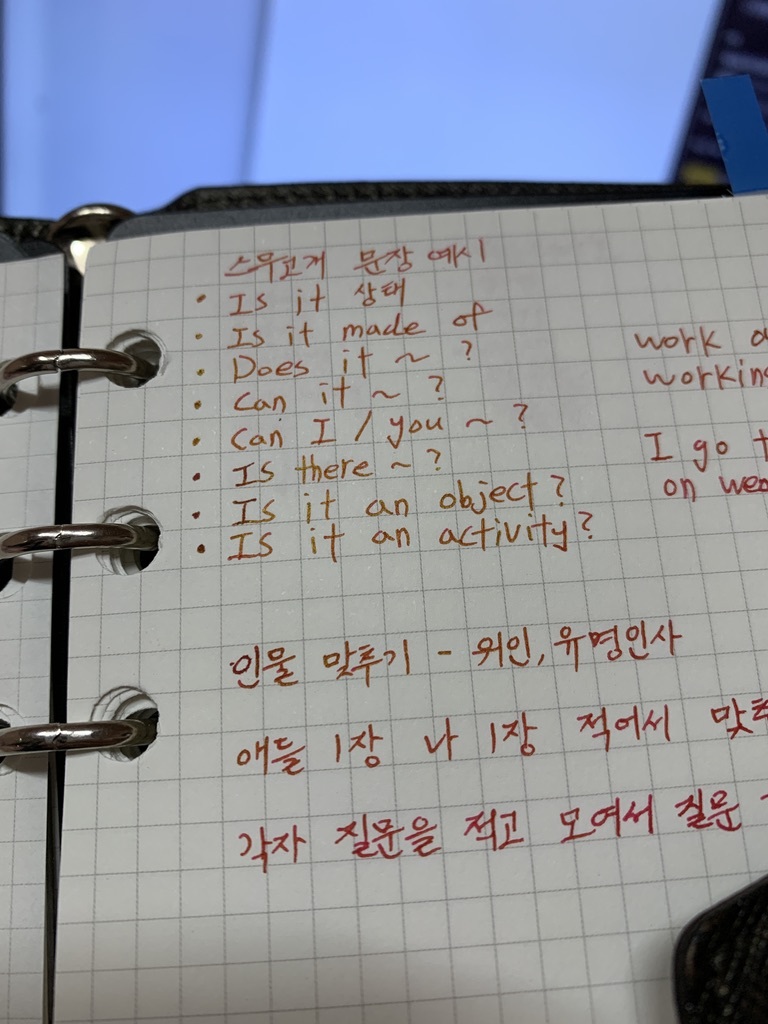 스무고개 문장 예시
• Is it 상태
• Is it made of
• Does it ~ ?
• Can it ~ ?
• Can I / you ~ ?
• Is there ~ ?
• Is it an object?
• Is it an activity?
work
working
I go
on
인물 맞추기 - 위인, 유명인사
애들 1장 나 1장 적어서
각자 질문을 적고 모여서 질문